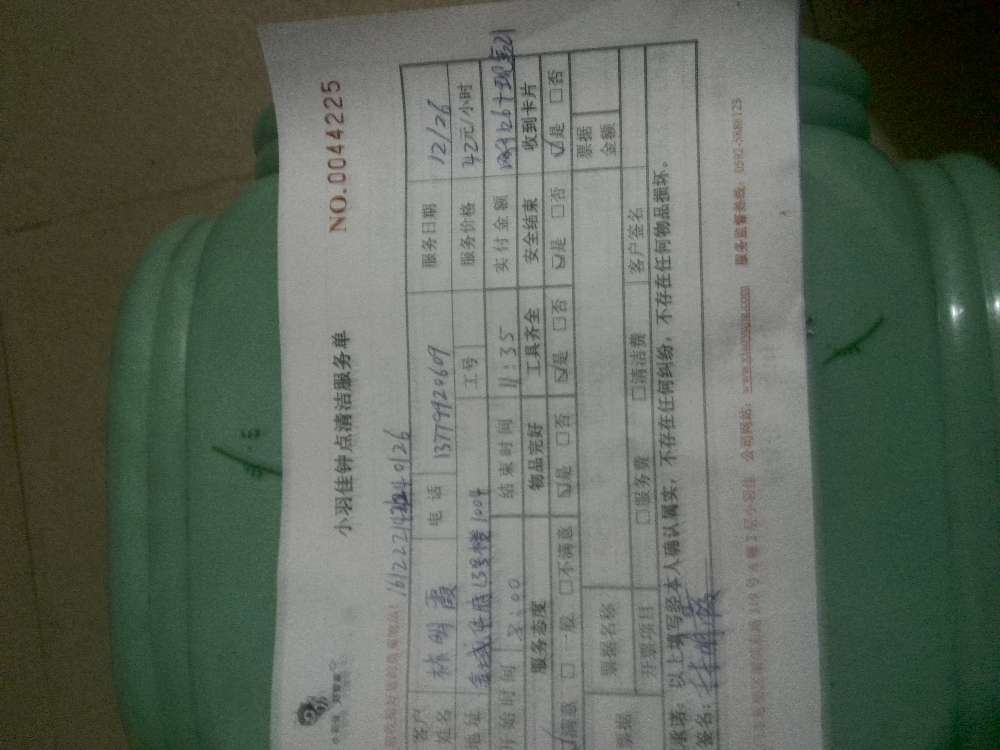 小羽佳 好管家
NO.0044225
小羽佳钟点清洁服务单
客户姓名 林明霞 电话 13779920609 服务日期 12/26
地址 13号楼1004 工号 服务价格 42元/小时
开始时间 8:00 结束时间 11:35 实付金额
服务态度 物品完好 工具齐全 安全结束 收到卡片
☑满意 □一般 □不满意 ☑是 □否 ☑是 □否 ☑是 □否 ☑是 □否
票据 票据名称 票据金额
开票项目 □服务费 □清洁费 客户签名
承诺：以上填写经本人确认属实，不存在任何纠纷，不存在任何物品损坏。
签名：林明霞
2层小羽佳 公司网站： 服务监督热线：